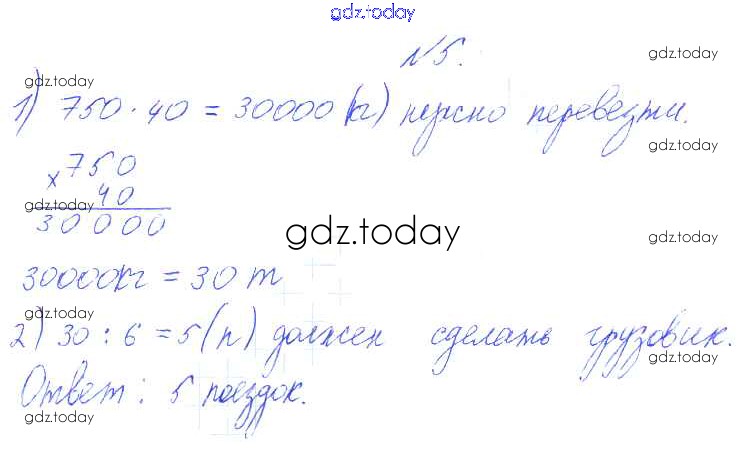 gdz.today
№5.
gdz.today
gdz.today
1) 750 · 40 = 30000 (кг) нужно перевезти.
gdz.today
× 750
40
gdz.today
30000
gdz.today
gdz.today
30000кг = 30 т
gdz.today
2) 30 : 6 = 5 (п) должен сделать грузовик.
gdz.today
Ответ: 5 поездок.
gdz.today
gdz.today